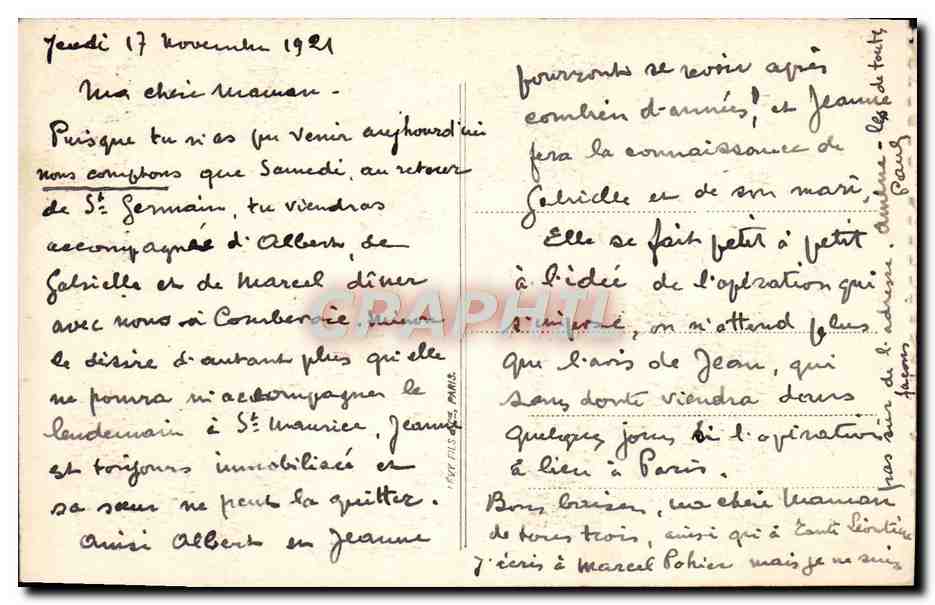 Jeudi 17 Novembre 1921
Ma chère Maman -
Puisque tu n'as pu venir aujhourd'ui
nous comptons que Samedi, au retour
de St Germain, tu viendras
accompagnée d'Albert, de
Gabrielle et de Marcel dîner
avec nous à Combevoie. Minon
le désire d'autant plus qu'elle
ne pourra m'accompagner le
lendemain à St Maurice, Jeanne
est toujours immobilisée et
sa sœur ne peut la quitter.
Ainsi Albert et Jeanne
LEVY FILS & Cie PARIS
pourront se revoir après
combien d'années! et Jeanne
fera la connaissance de
Gabrielle et de son mari,
Elle se fait petit à petit
à l'idée de l'opération qui
s'impose, on n'attend plus
que l'avis de Jean, qui
sans doute viendra dans
quelques jours si l'opération
à lieu à Paris.
Bons baisers, ma chère Maman
de tous trois, ainsi qu'à Tante Léontine
J'écris à Marcel Pohier mais je ne suis
pas sur de l'adresse. amène-les de toute
façons Paul
CRAPHTIL